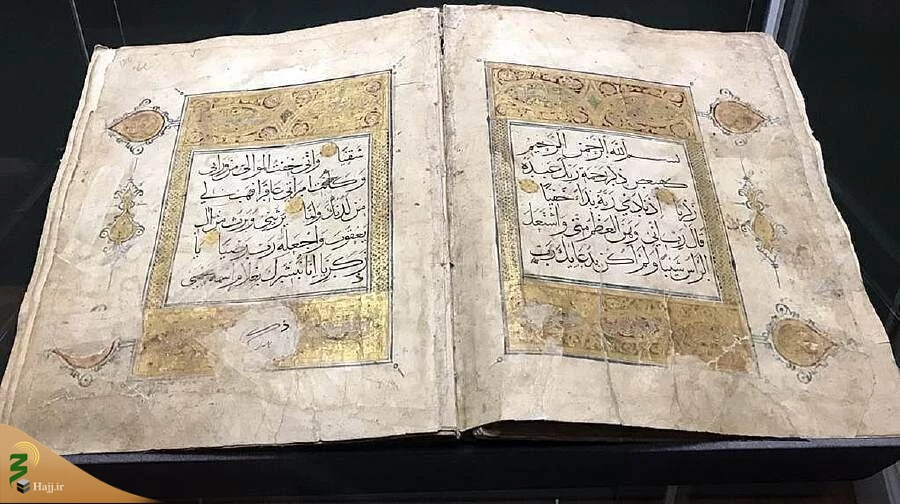 بسم الله الرحمن الرحيم
كهيعص ذكر رحمة ربك عبده
زكريا اذ نادى ربه نداء خفيا
قال رب اني وهن العظم مني واشتعل
الراس شيبا ولم اكن بدعائك رب
شقيا واني خفت الموالي من وراءى
وكانت امراتي عاقرا فهب لي
من لدنك وليا يرثني ويرث من ال
يعقوب واجعله رب رضيا يا
زكريا انا نبشرك بغلام اسمه يحيى
Hajj.ir